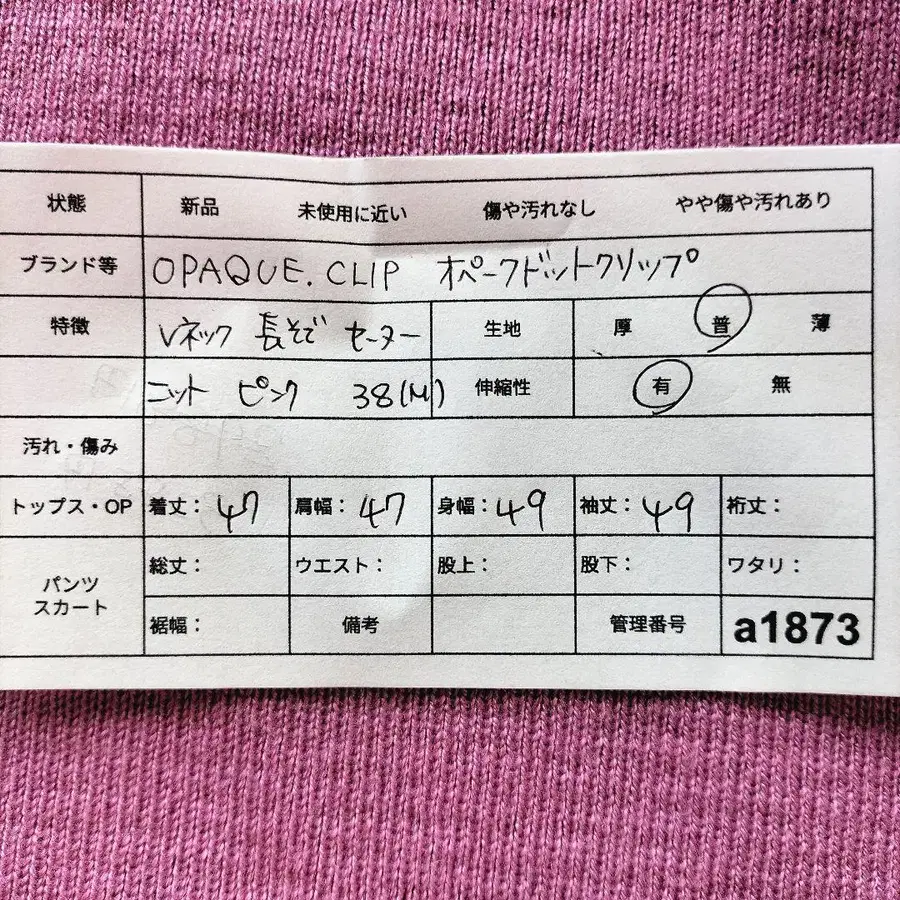 状態 新品 未使用に近い 傷や汚れなし やや傷や汚れあり
ブランド等 OPAQUE.CLIP オペークドットクリップ
特徴 Vネック 長そで セーター 生地 厚 普 薄
ニット ピンク 38(M) 伸縮性 有 無
汚れ・傷み
トップス・OP 着丈: 47 肩幅: 47 身幅: 49 袖丈: 49 裄丈:
パンツ スカート 総丈: ウエスト: 股上: 股下: ワタリ:
裾幅: 備考 管理番号 a1873